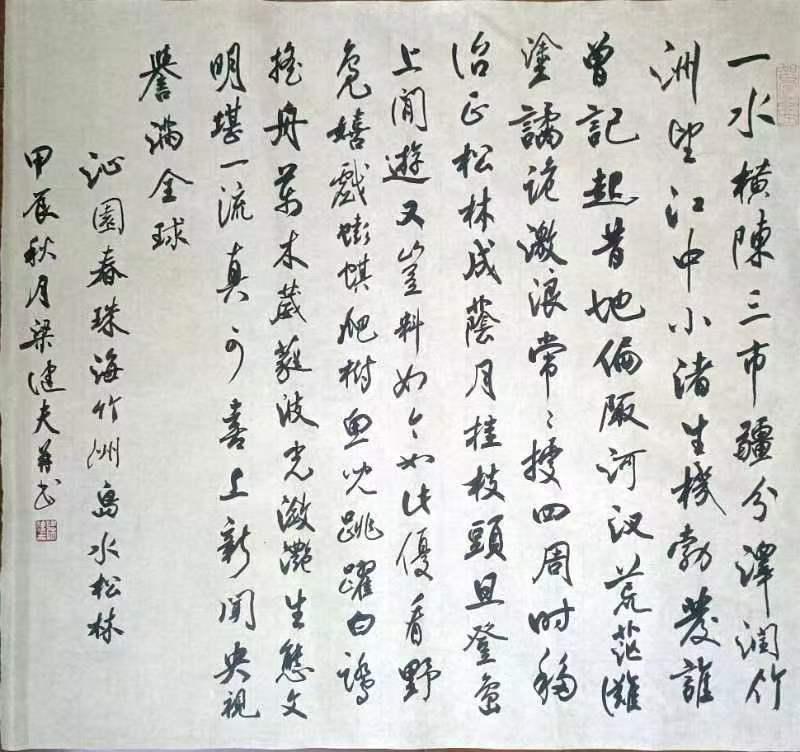 一水横陳三市疆分澤潤竹
洲望江中小渚生機勃發誰
曾記起昔地偏陬河汊荒茫灘
塗譎詭激浪常々擾四周时移
治正松林成蔭月挂枝頭且登島
上閒遊又豈料如今如此優看野
凫嬉戲蟛蜞爬樹魚兒跳躍白鷺
搖舟萬木葳蕤波光瀲灧生態文
明堪一流真可喜上新闻央视
譽滿全球
沁園春珠海竹洲島水松林
甲辰秋月梁健夫并书